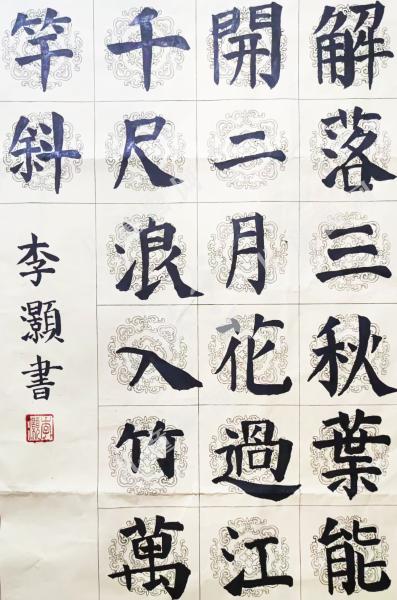 解落三秋葉能
開二月花過江
千尺浪入竹萬
竿斜
李灝書